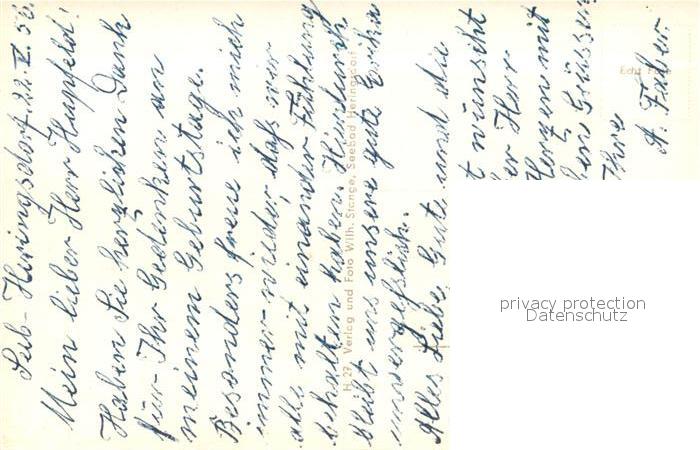 Seeb-Heringsdorf 22.X.56.
Mein lieber Herr Hupfeld!
Haben Sie herzlichen Dank
für Ihr Gedenken an
meinem Geburtstage.
Besonders freue ich mich
immer wieder daß wir
alle mit einander Fühlung
behalten haben. Hierdurch
bleibt uns unsere gute Erika
unvergeßlich.
Alles Liebe, Gute und die
t wünscht
er Herr
Herzen mit
Grüssen
Ihre
A. Faber
H 27 Verlag und Foto Wilh. Stange, Seebad Heringsdorf
Echt Foto
privacy protection
Datenschutz